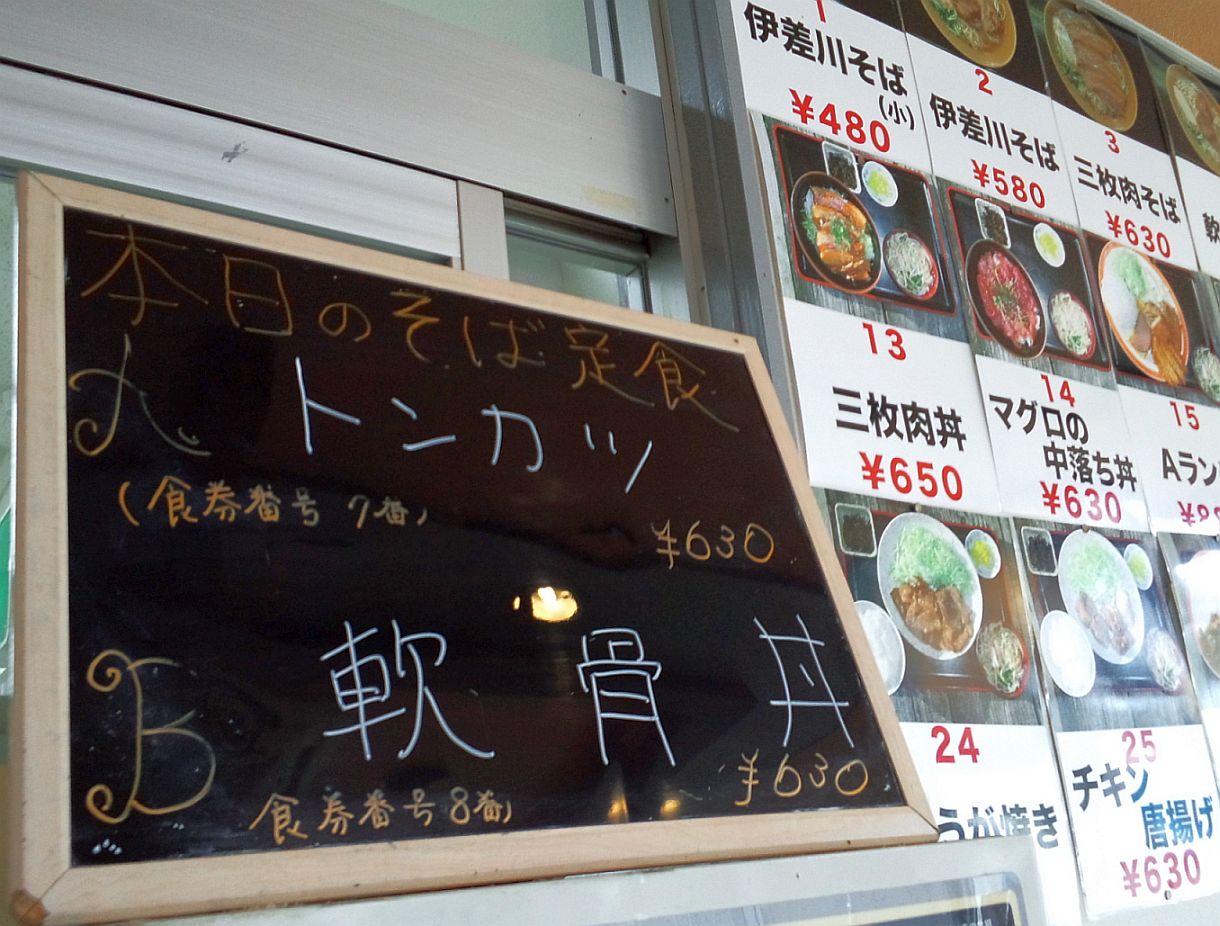 本日のそば定食
A トンカツ
(食券番号 7番)
¥630
B 軟骨丼
¥630
食券番号 8番)
1
伊差川そば
(小)
¥480
2
伊差川そば
¥580
3
三枚肉そば
¥630
軟
13
三枚肉丼
¥650
14
マグロの
中落ち丼
¥630
15
Aラン
24
うが焼き
25
チキン
唐揚げ
¥630